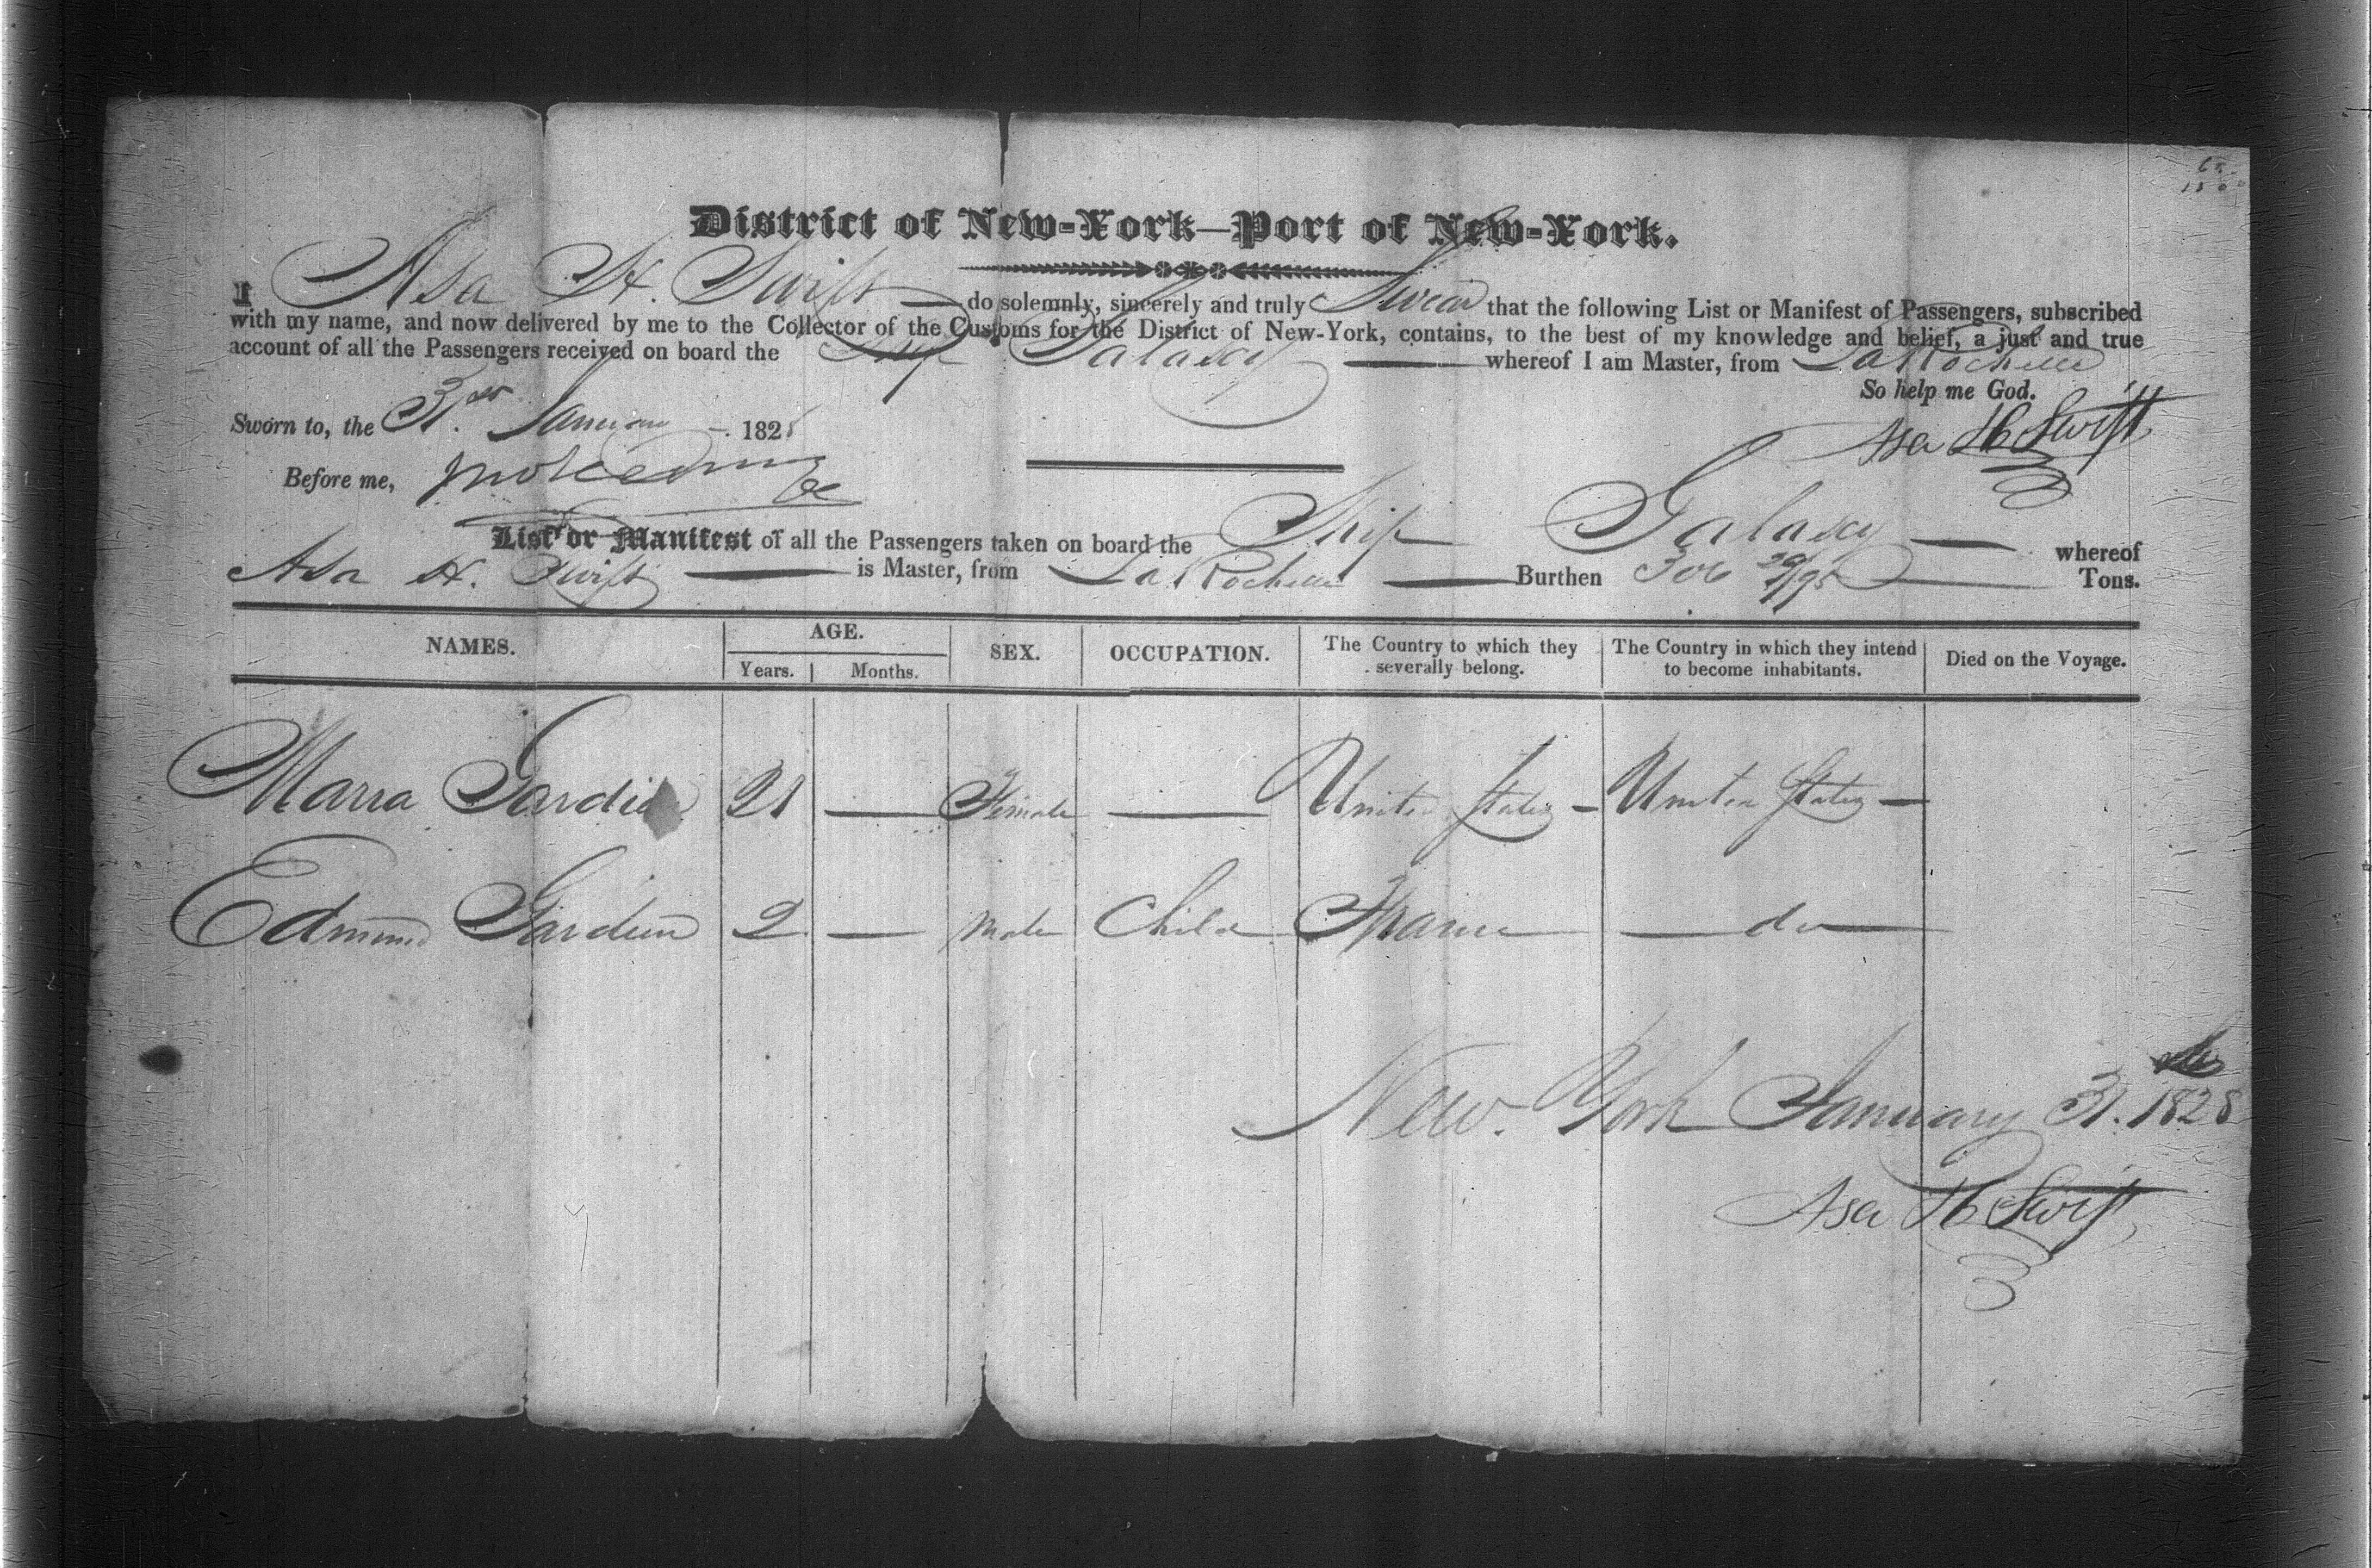 District of New-York—Port of New-York.
I Asa H. Swift — do solemnly, sincerely and truly Swear that the following List or Manifest of Passengers, subscribed
with my name, and now delivered by me to the Collector of the Customs for the District of New-York, contains, to the best of my knowledge and belief, a just and true
account of all the Passengers received on board the Ship Galaxy — whereof I am Master, from La Rochelle
So help me God.
Sworn to, the 31st January - 1828
Asa H Swift
Before me,
List or Manifest of all the Passengers taken on board the Ship Galaxy — whereof
Asa H. Swift — is Master, from La Rochelle — Burthen 306 /95 — Tons.
NAMES. AGE. SEX. OCCUPATION. The Country to which they severally belong. The Country in which they intend to become inhabitants. Died on the Voyage.
Years. Months.
Maria 21 — Female — United States — United States —
Edmund 2 — Male Child France — do —
New York January 31. 1828
Asa H Swift